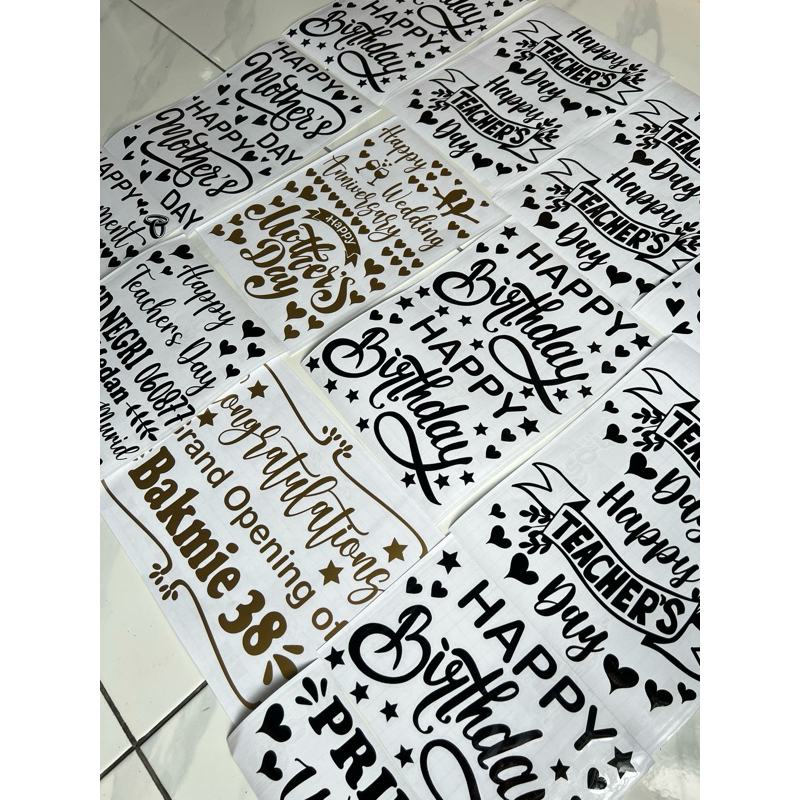 HAPPY
Birthday
Happy
TEACHER'S
Day
Happy
TEACHER'S
Day
HAPPY
Mother's
DAY
HAPPY
Mother's
DAY
Happy
Wedding
Anniversary
HAPPY
Mother's
Day
TEACHER'S
Day
Happy
TEACHER'S
Day
HAPPY
Happy
Teacher's Day
NEGRI 060877
Medan
Murid
HAPPY
Birthday
HAPPY
Birthday
Congratulations
Grand Opening of
Bakmie 38
Day
Happy
TEACHER'S
Day
HAPPY
Birthday